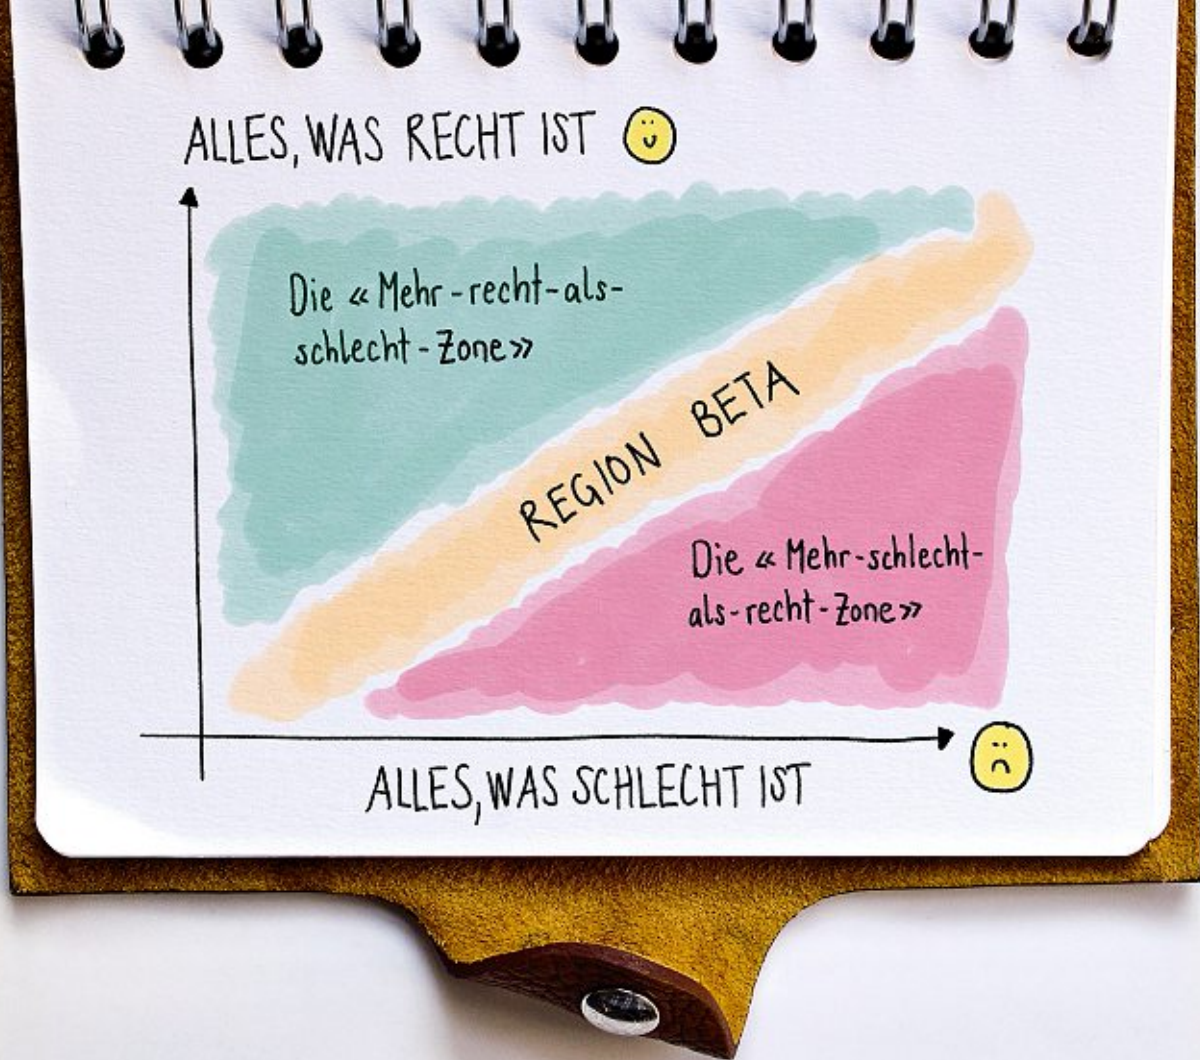 ALLES, WAS RECHT IST
Die «Mehr-recht-als-
schlecht-Zone»
REGION BETA
Die «Mehr-schlecht-
als-recht-Zone»
ALLES, WAS SCHLECHT IST